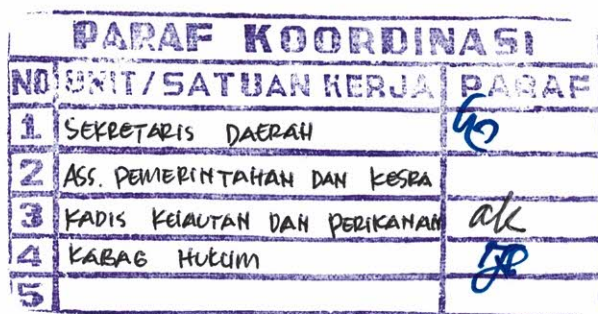 PARAF KOORDINASI
NO UNIT/SATUAN KERJA PARAF
1 SEKRETARIS DAERAH
2 ASS. PEMERINTAHAN DAN KESRA
3 KADIS KELAUTAN DAN PERIKANAN
4 KABAG HUKUM
5